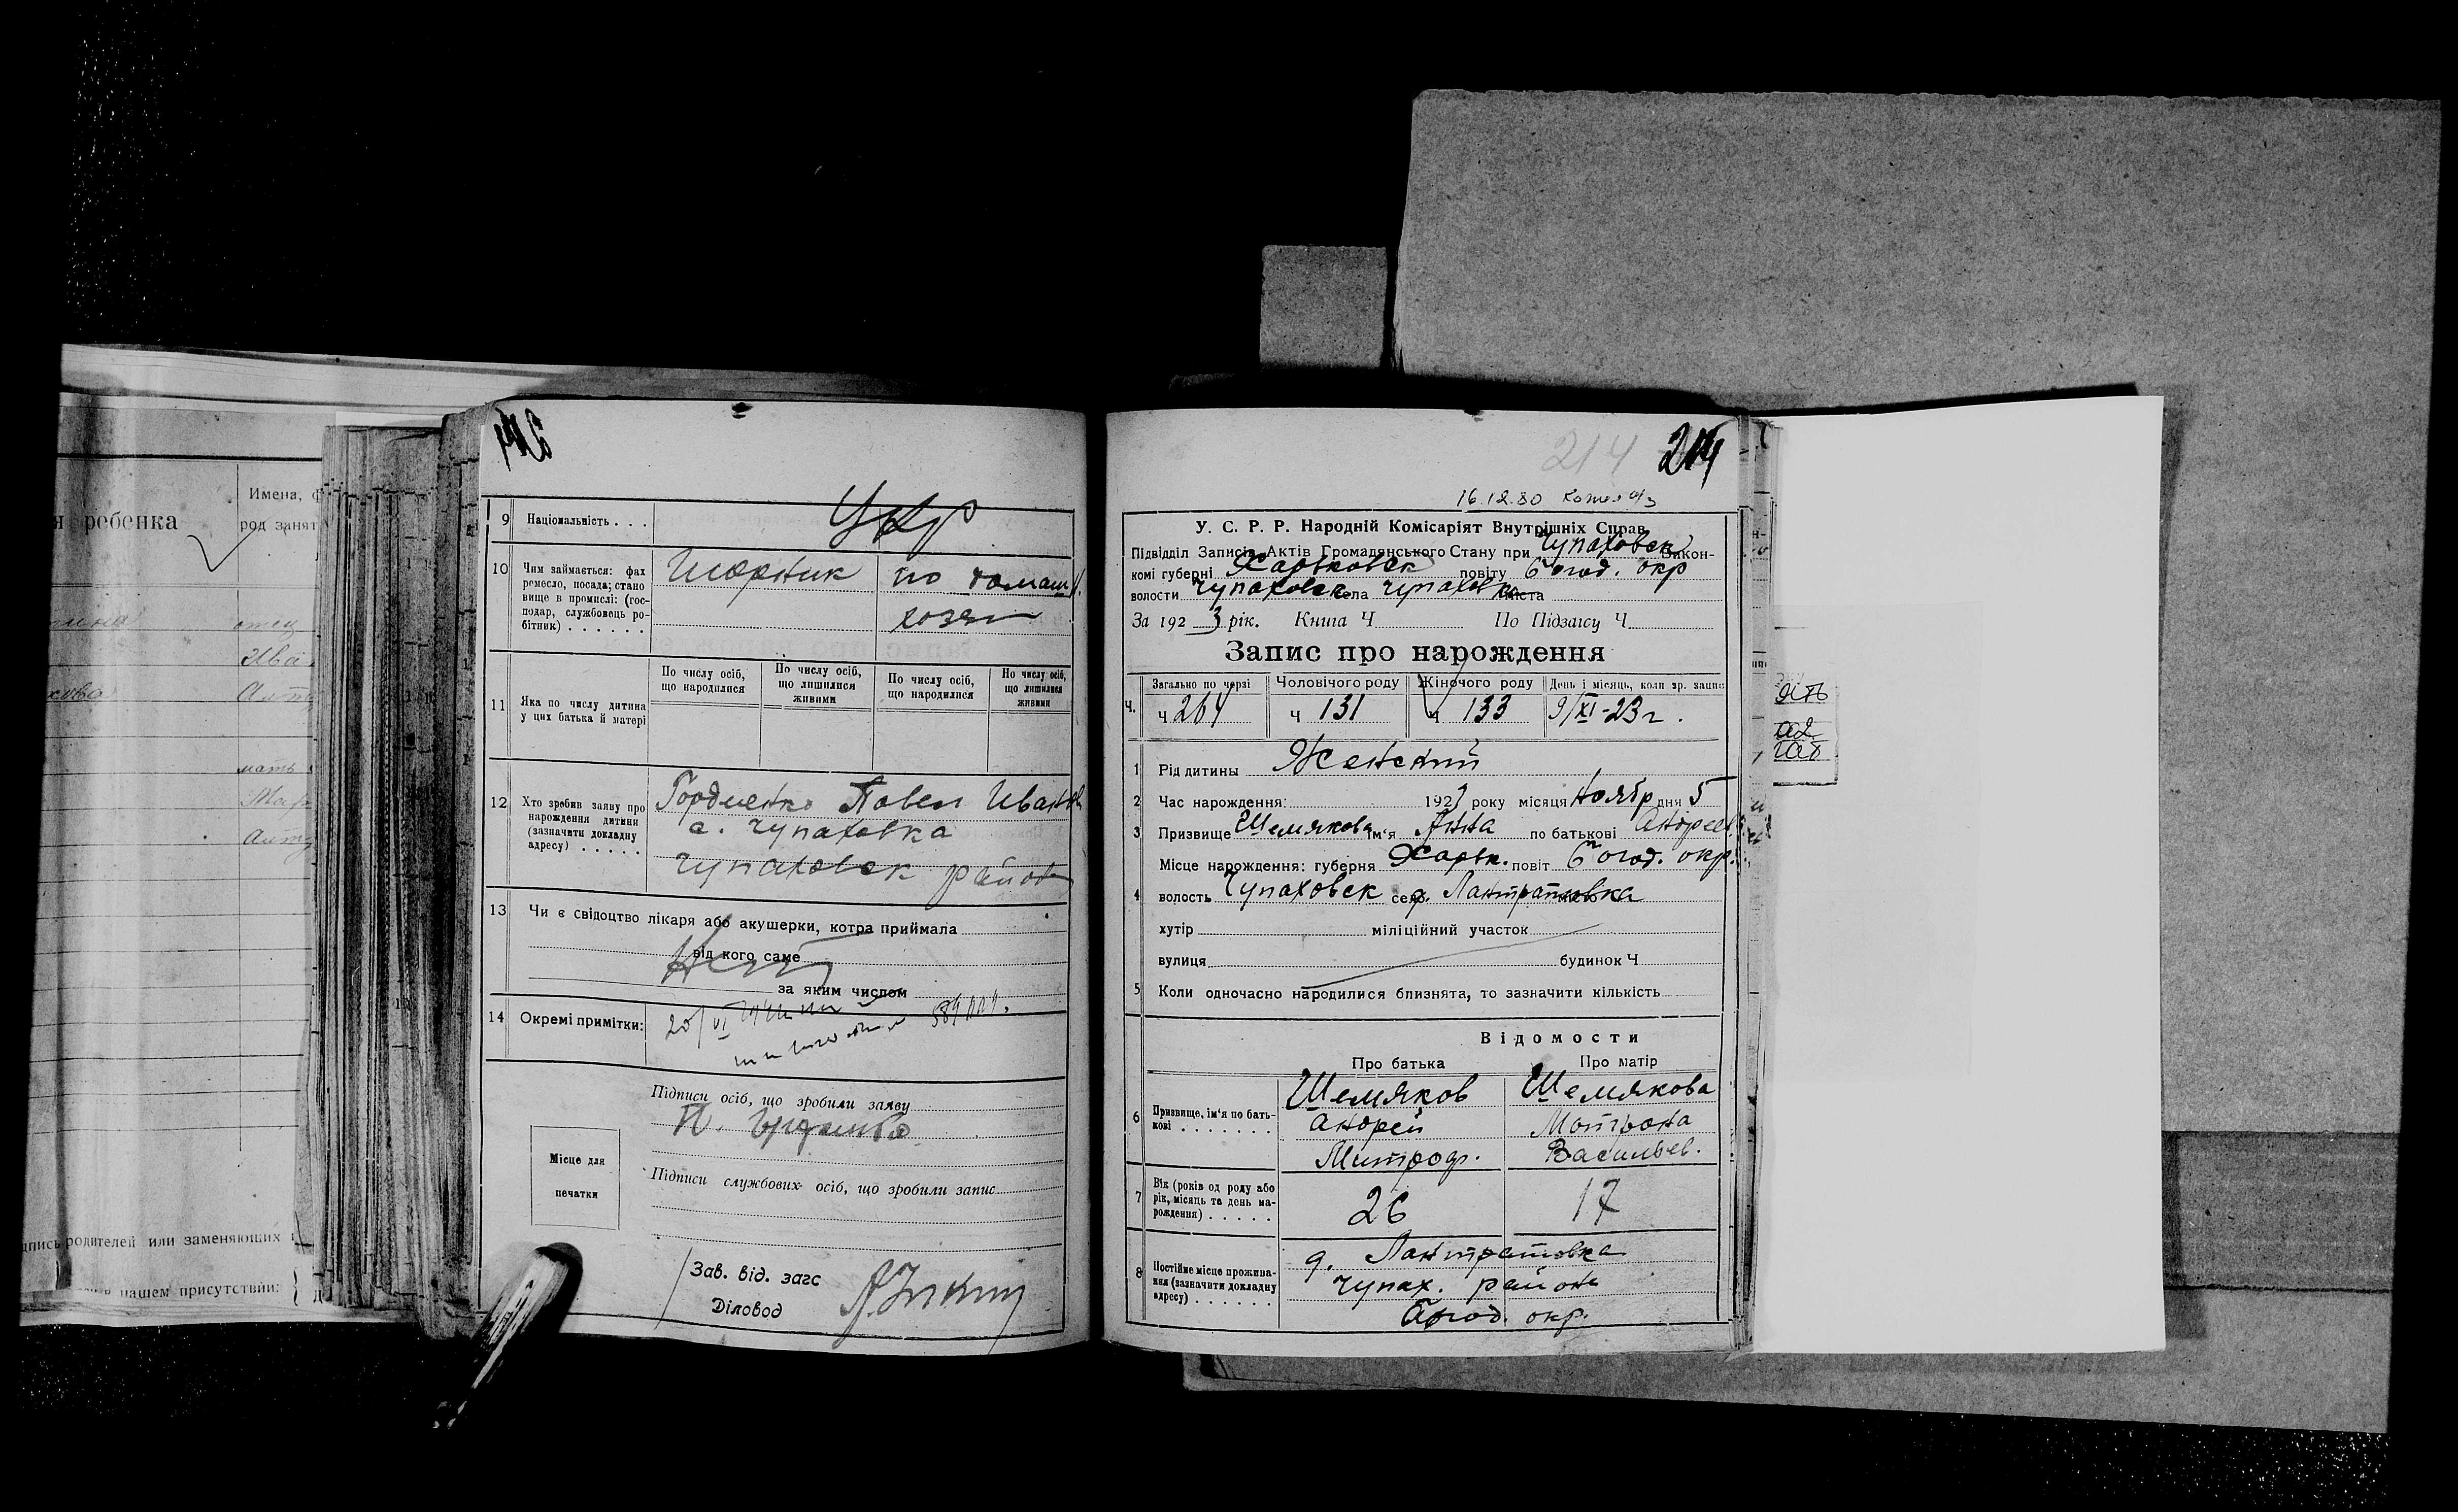 я ребенка
Имена, ф
род занят
отец
Ива
мать
подпись родителей или заменяющих
в нашем присутствии:
9 Національність . . . Укр
10 Чим займається: фах ремесло, посада; стано вище в промислі: (гос-подар, службовець ро-бітник) . . . . . .
по домаш
хозя
11 Яка по числу дитина у цих батька й матері
По числу осіб, що народилися
По числу осіб, що лишилися живими
По числу осіб, що народилися
По числу осіб, що лишилися живими
12 Хто зробив заяву про нарождення дитини (зазначити докладну адресу) . . . . .
Гордиенко Павел Иванов
с. Чупаховка
Чупаховск района
13 Чи є свідоцтво лікаря або акушерки, котра приймала
від кого саме
за яким числом
14 Окремі примітки:
Підписи осіб, що зробили заяву
Підписи службових осіб, що зробили запис
Місце для
печатки
Зав. від. загс
Діловод
214 214
16.12.80
У. С. Р. Р. Народній Комісаріят Внутрішніх Справ
Підвідділ Записів Актів Громадянського Стану при Чупаховск Викон-
комі губерні Харьковск повіту Богод. окр
волости Чупаховск села Чупаховка міста
За 1923 рік. Книга Ч По Підзагсу Ч
Запис про народження
Загально по черзі Чоловічого роду Жіночого роду День і місяць, коли зр. запис
Ч. ч 264 ч 131 ч 133 9/XI-23 г.
1 Рід дитины Женский
2 Час нарождення: 1923 року місяця Ноябр дня 5
3 Призвище Шемякова ім'я Анна по батькові Андреев.
Місце нарождення: губерня Харьк. повіт Богод. окр.
4 волость Чупаховск село д. Лантратовка
хутір міліційний участок
вулиця будинок Ч
5 Коли одночасно народилися близнята, то зазначити кількість
Відомости
Про батька Про матір
6 Призвище, ім'я по бать-кові . . . . . . . .
Шемяков Шемякова
Андрей Мотрона
Митроф. Васильев.
7 Вік (років од роду або рік, місяць та день на-рождення) . . . . . .
26 17
8 Постійне місце прожива-ння (зазначити докладну адресу) . . . . . . .
д. Лантратовка
Чупах. района
Богод. окр.